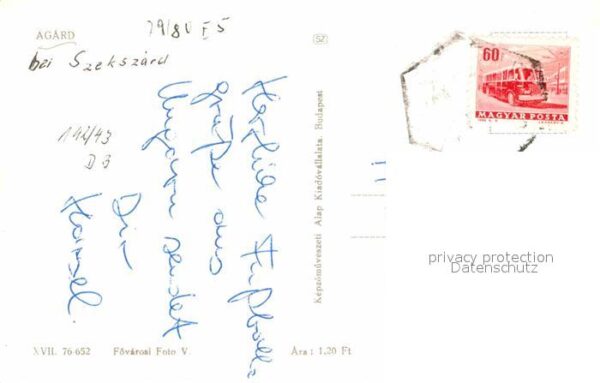 AGÁRD
bei Szekszárd
79/80 I 5
142/43
D 3
Herzliche Fußball
grüße aus
Ungarn sendet
Dir
Hansel.
XVII. 76-652 Fővárosi Foto V. Ára : 1,20 Ft
Képzőművészeti Alap Kiadóvállalata, Budapest
SZ
60f
MAGYAR POSTA
privacy protection
Datenschutz